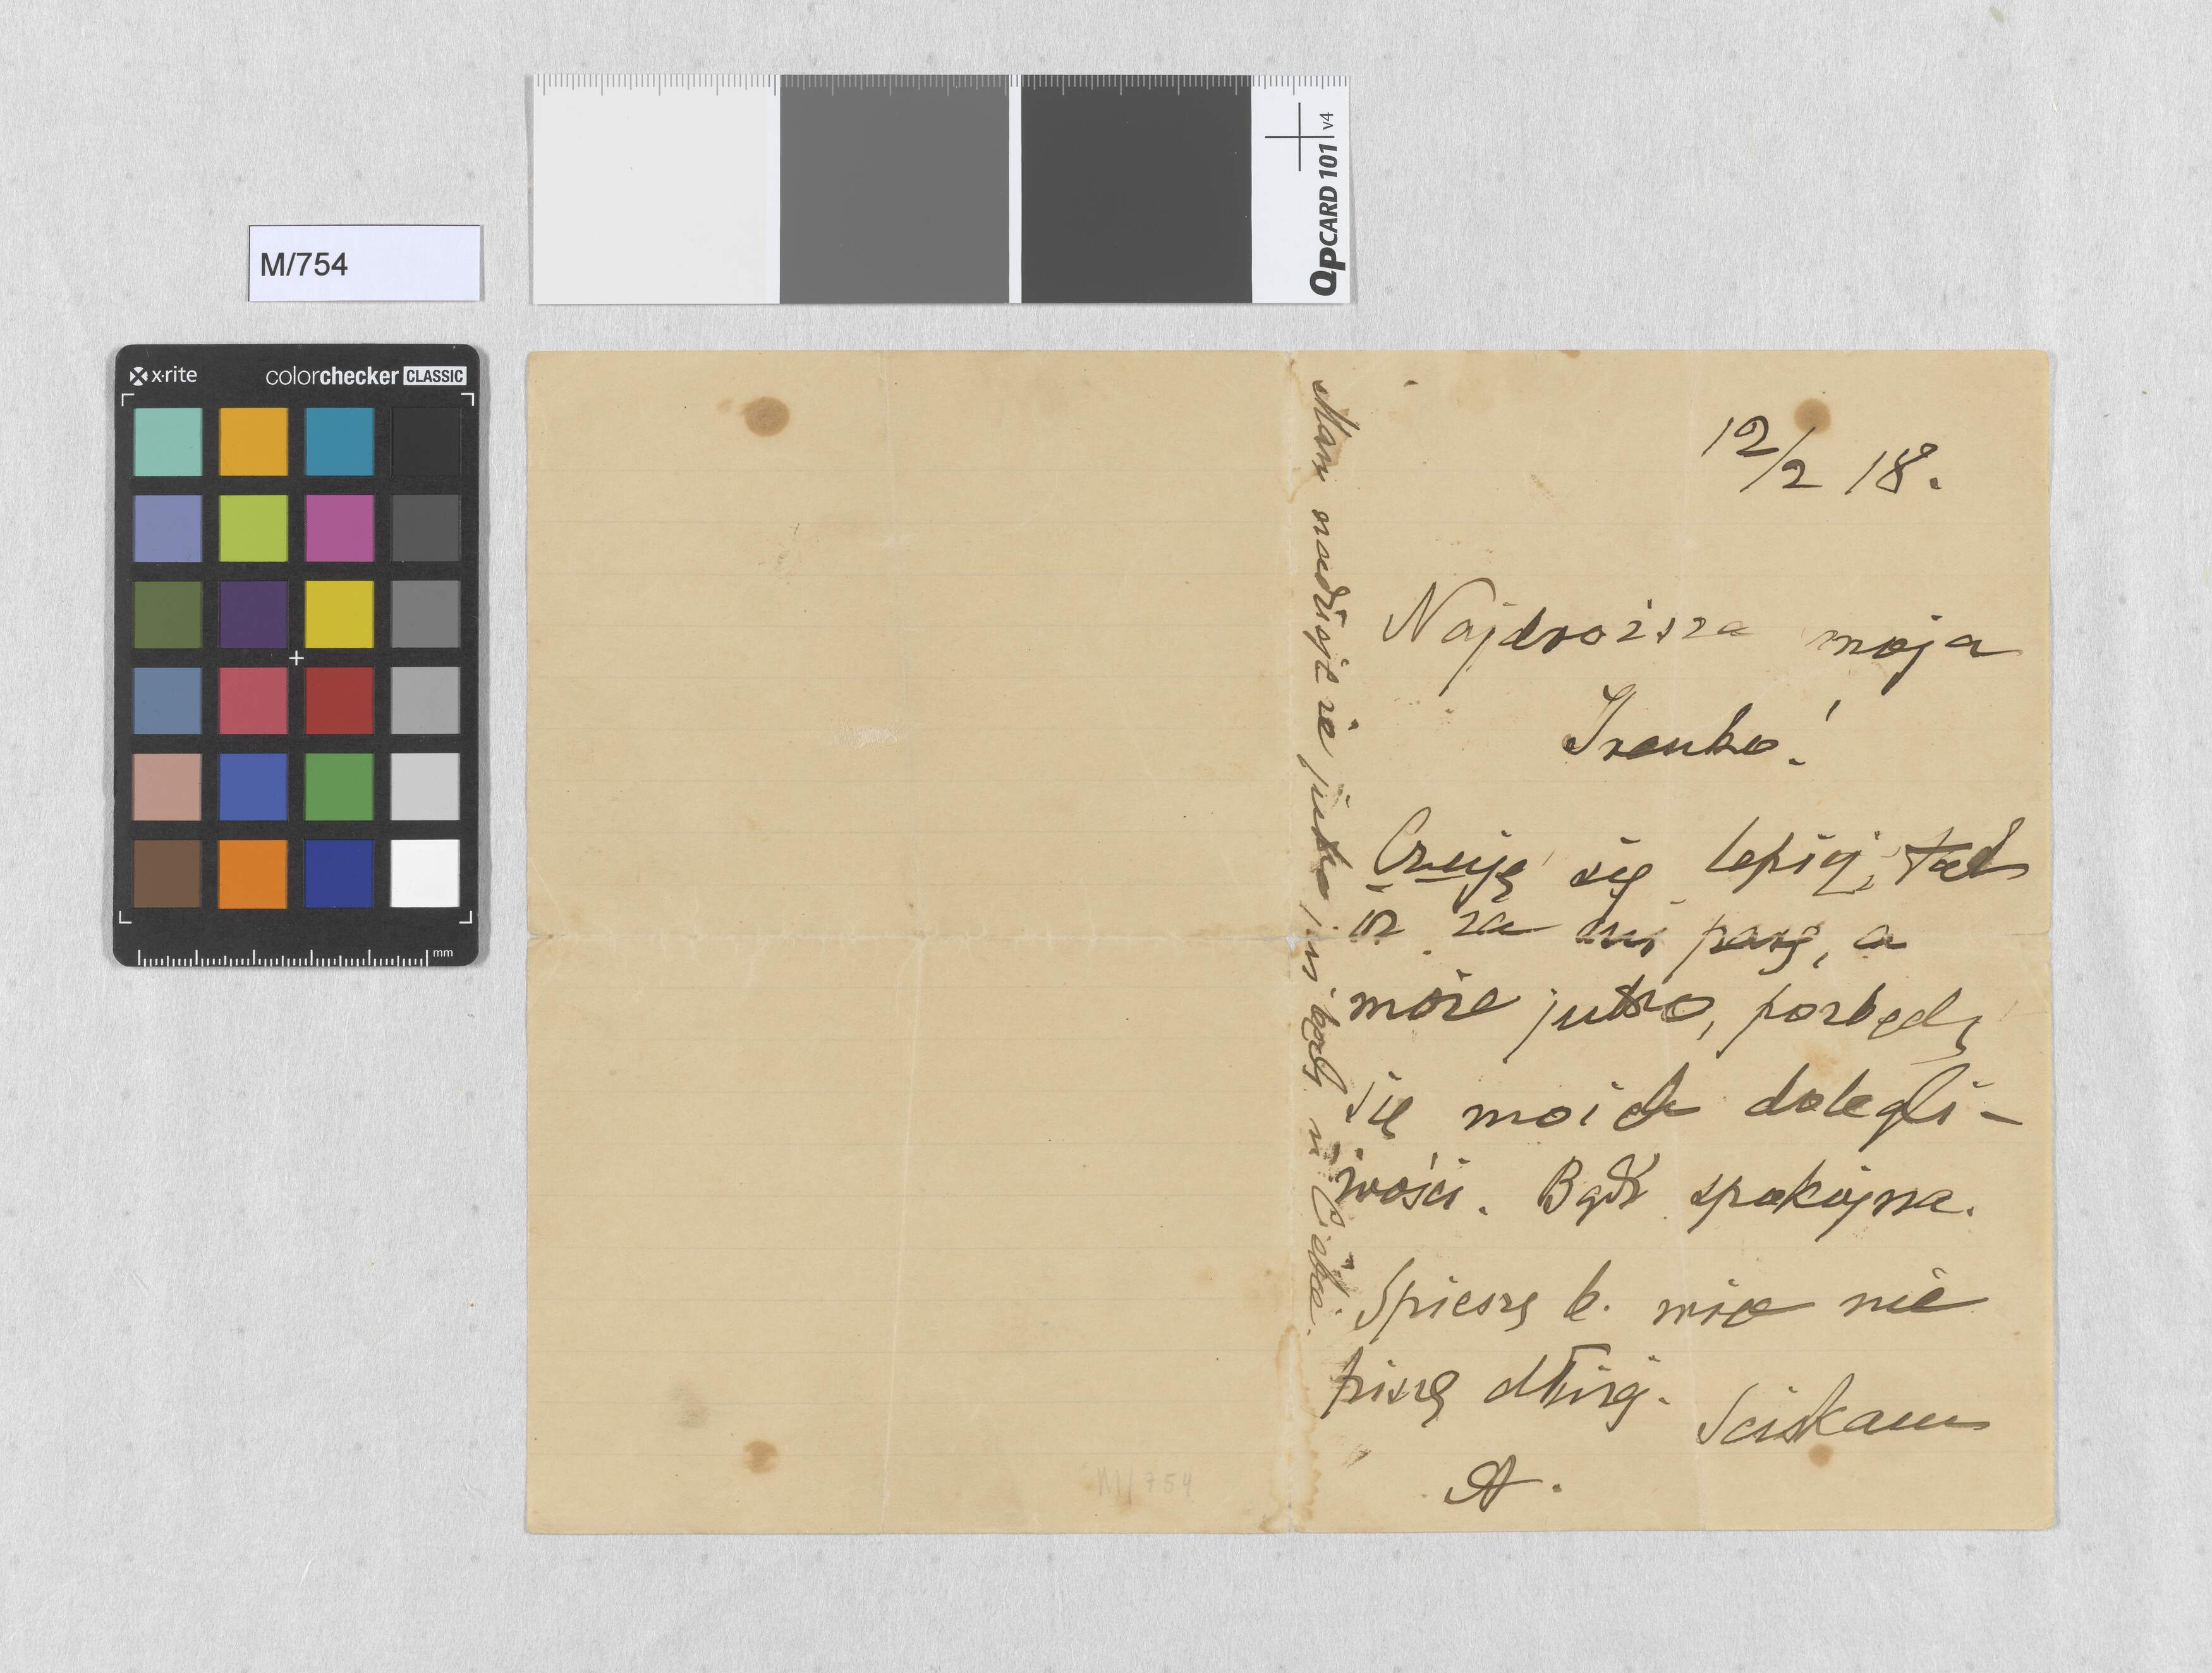 M/754
QPCARD 101 v4
x·rite colorchecker CLASSIC
mm
12/2 18.
Najdroższa moja
Irenko!
Czuję się lepiej, tak
iż za dni parę, a
może jutro, pozbędę
się moich dolegli-
wości. Bądź spokojna.
Spieszę b. więc nie
piszę dłużej.
Ściskam
A.
Mam nadzieję że jutro już będę u Ciebie.
M/754